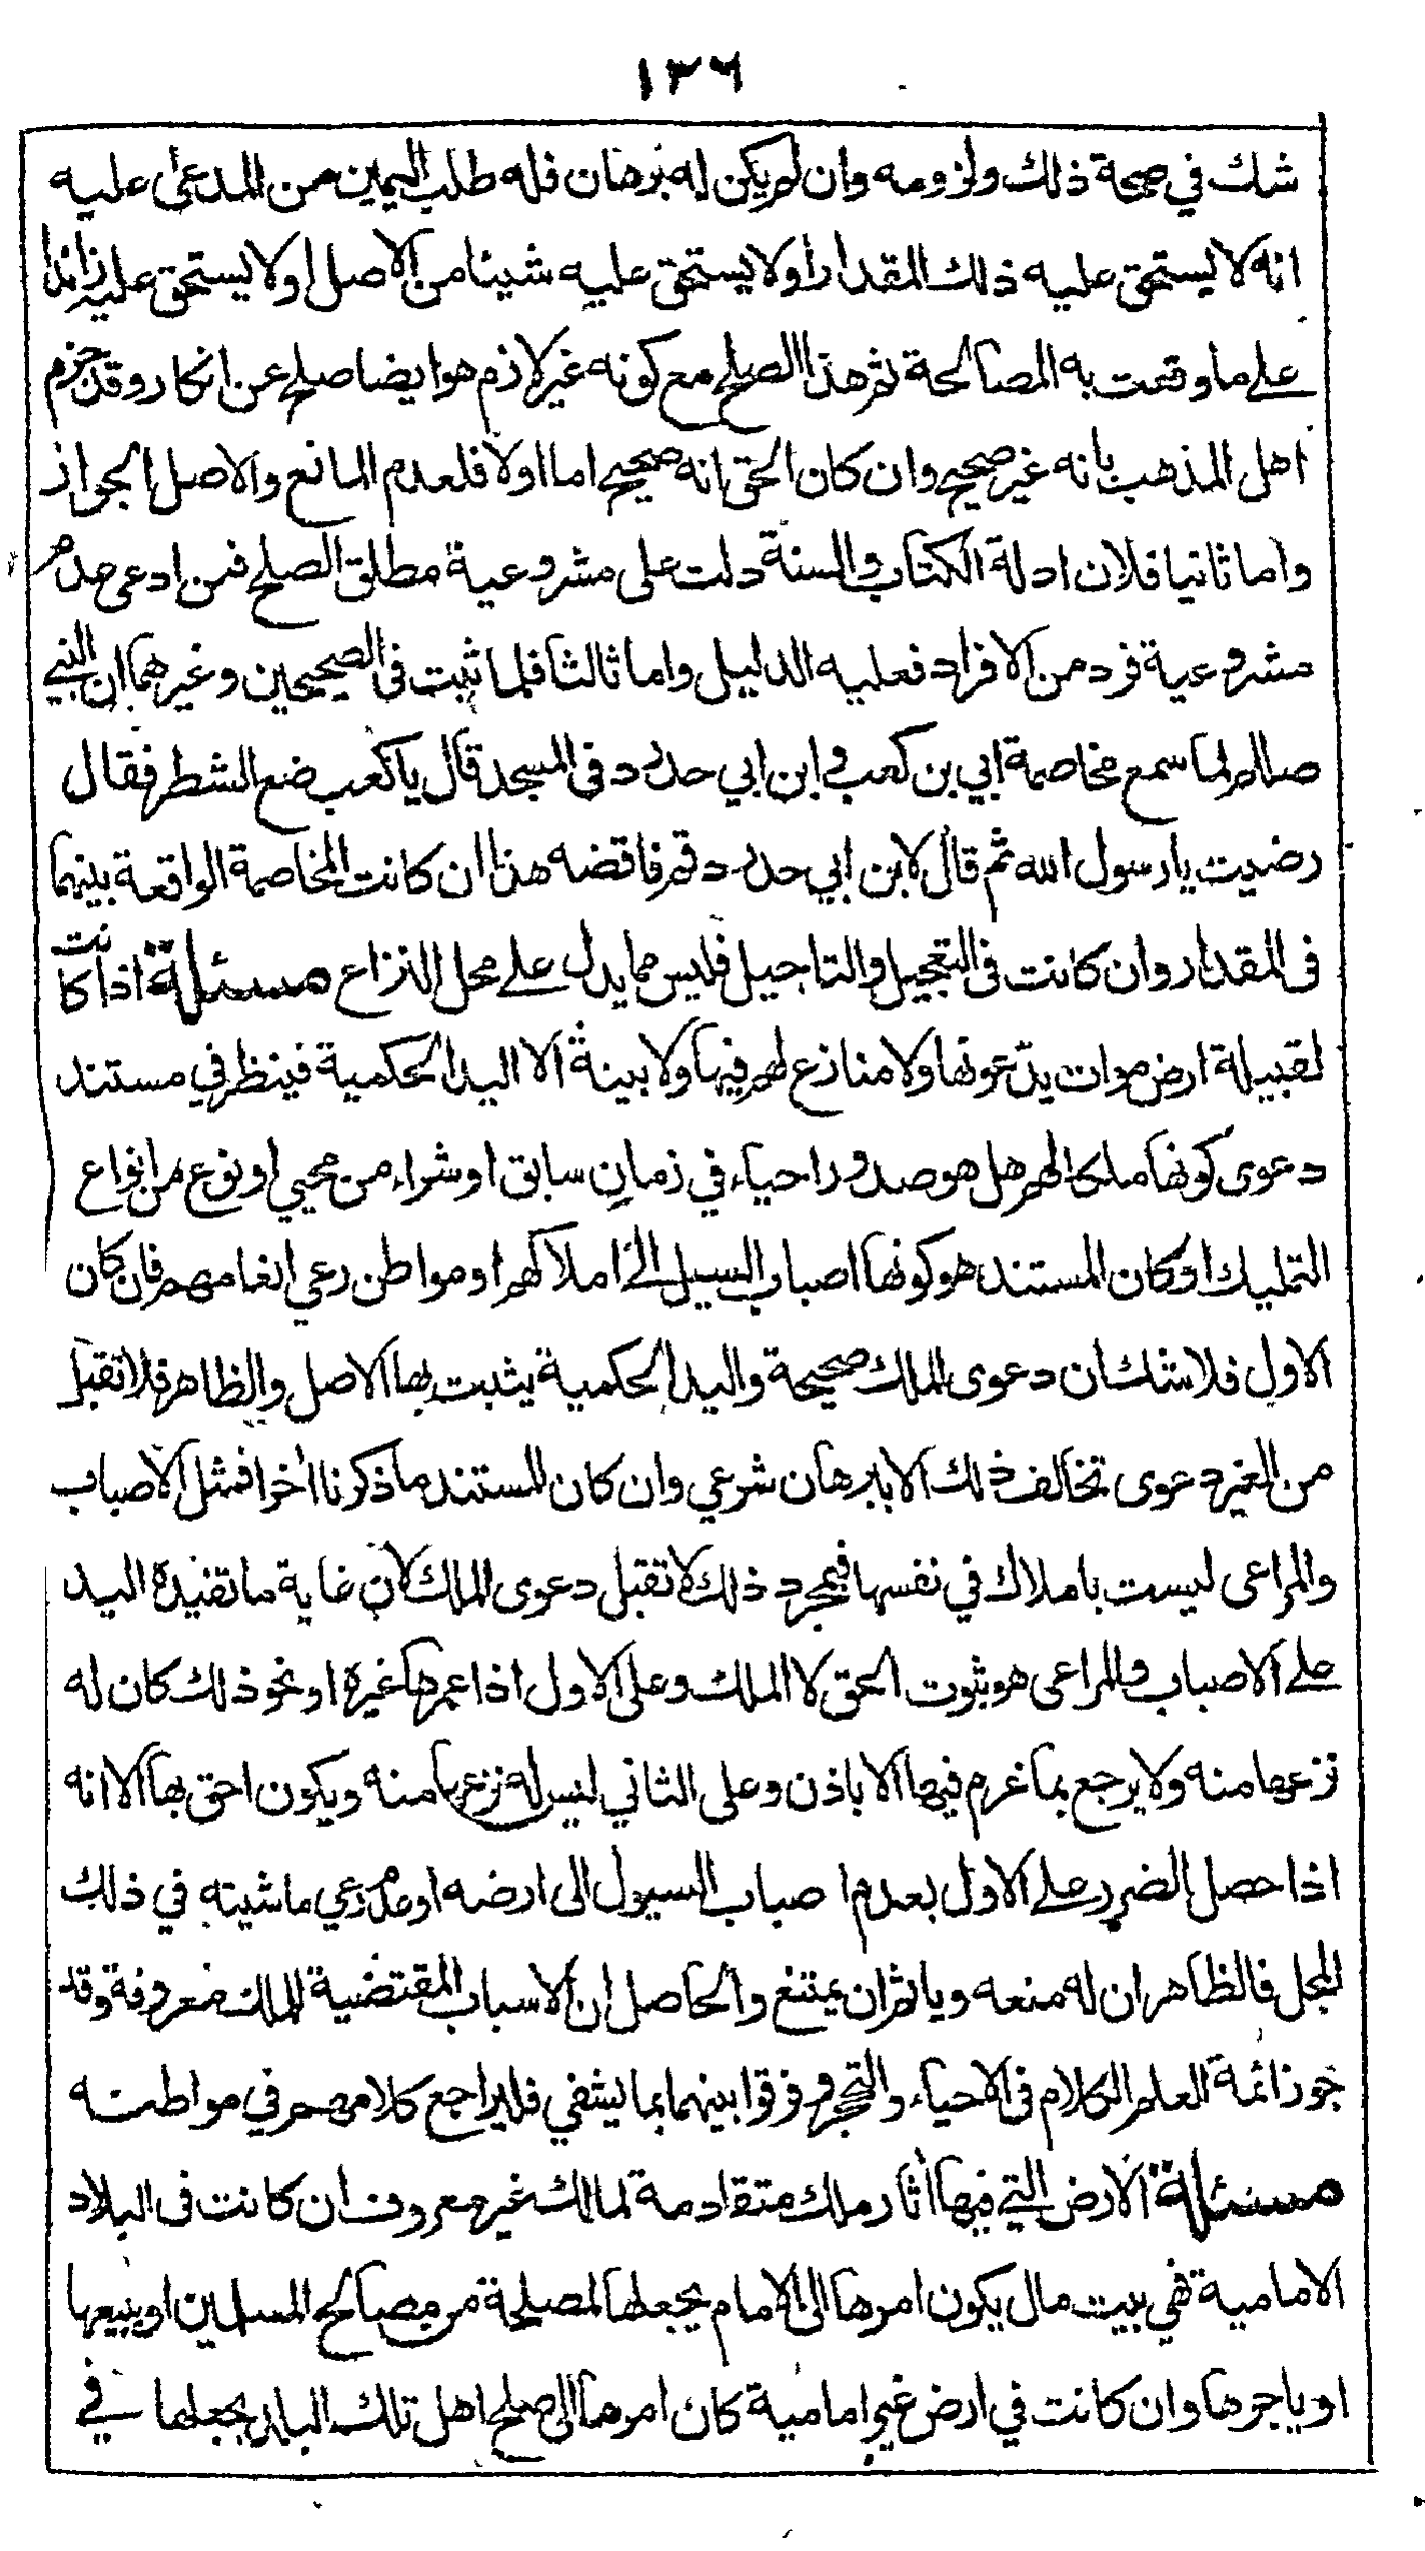 ١٣٦
شك في صحة ذلك ولزومه وان لم يكن له برهان فله طلب اليمين من المدعى عليه
انه لا يستحق عليه ذلك المقدار او لا يستحق عليه شيئا من الاصل او لا يستحق عليه زائدا
على ما وقعت به المصالحة ثم هذا الصلح مع كونه غير لازم هو ايضا صلح عن انكار وقد جزم
اهل المذهب بانه غير صحيح وان كان الحق انه صحيح اما اولا فلعدم المانع والاصل الجواز
واما ثانيا فلان ادلة الكتاب والسنة دلت على مشروعية مطلق الصلح فمن ادعى عدم
مشروعية فرد من الافراد فعليه الدليل واما ثالثا فلما ثبت في الصحيحين وغيرهما ان النبي
صللم لما سمع مخاصمة ابي بن كعب و ابن ابي حدرد في المسجد قال يا كعب ضع الشطر فقال
رضيت يا رسول الله ثم قال لابن ابي حدرد قم فاقضه هذا ان كانت المخاصمة الواقعة بينهما
في المقدار وان كانت في التعجيل والتاجيل فليس مما يدل على محل النزاع مسئلة اذا كانت
لقبيلة ارض موات يدّعونها ولا منازع لهم فيها ولا بينة الا اليد الحكمية فينظر في مستند
دعوى كونها ملكا لهم هل هو صدور احياء في زمان سابق او شراء من محيي او نوع من انواع
التمليك او كان المستند هو كونها اصباب السيل الى املاكهم او مواطن رعي انعامهم فان كان
الاول فلا شك ان دعوى الملك صحيحة واليد الحكمية يثبت بها الاصل والظاهر فلا تقبل
من الغير دعوى تخالف ذلك الا ببرهان شرعي وان كان المستند ما ذكرنا اخرا فمثل الاصباب
والمراعى ليست باملاك في نفسها فبمجرد ذلك لا تقبل دعوى الملك لان غاية ما تفيده اليد
على الاصباب والمراعى هو ثبوت الحق لا الملك وعلى الاول اذا عمرها غيره او نحو ذلك كان له
نزعها منه ولا يرجع بما غرم فيها الا باذن وعلى الثاني ليس له نزعها منه ويكون احق بها الا انه
اذا حصل الضرر على الاول بعدم ا صباب السيول الى ارضه او عدم رعي ماشيته في ذلك
المحل فالظاهر ان له منعه وياثم ان يمتنع والحاصل ان الاسباب المقتضية للملك معروفة وقد
جوز ائمة العلم الكلام في الاحياء والتحجر وفرقوا بينهما بما يشفي فليراجع كلامهم في مواطنه
مسئلة الارض التي فيها اثار ملك متقادمة لمالك غير معروف ان كانت في البلاد
الامامية فهي بيت مال يكون امرها الى الامام يجعلها لمصلحة من مصالح المسلمين او يبيعها
او ياجرها وان كانت في ارض غير امامية كان امرها الى صلح اهل تلك البلد يجعلها في